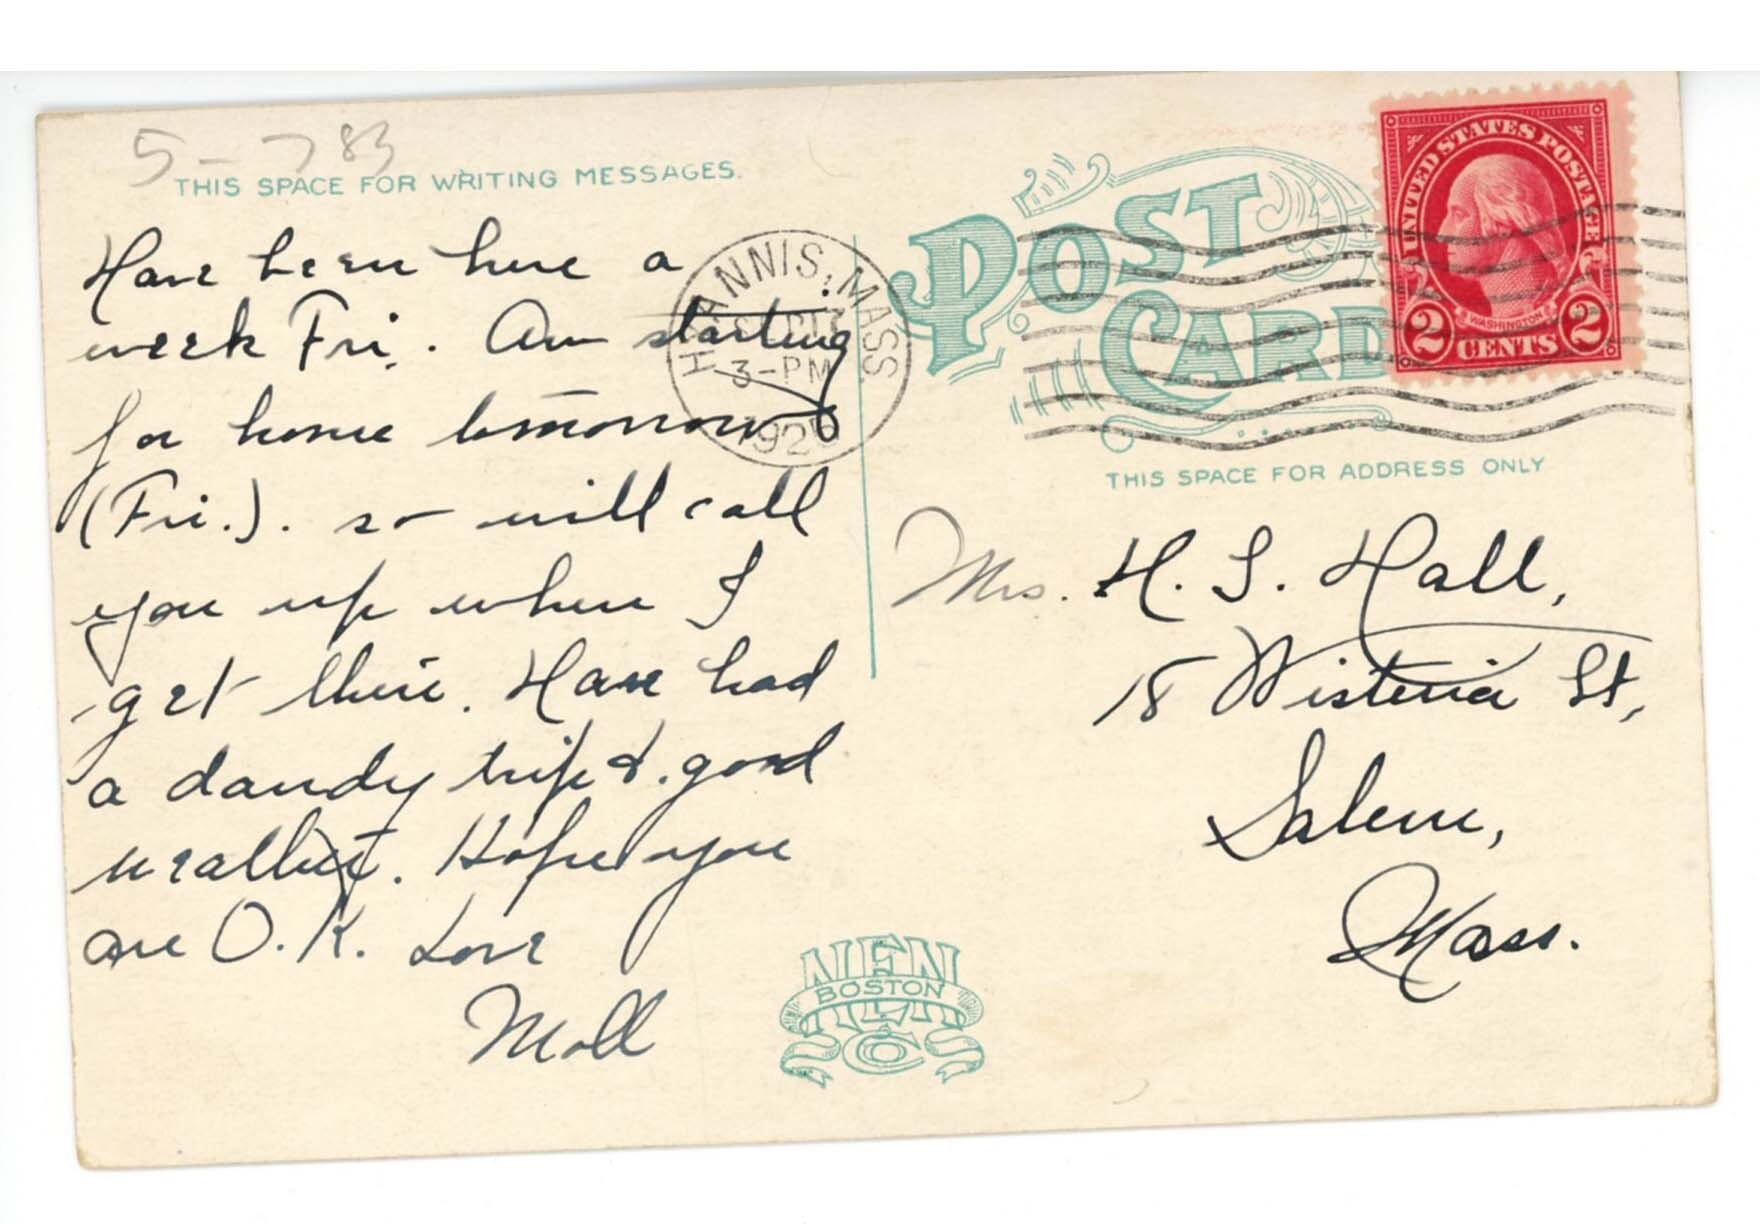 5-783
THIS SPACE FOR WRITING MESSAGES.
Have been here a
week Fri. Am starting
for home tomorrow
(Fri.). so will call
you up when I
get there. Have had
a dandy trip & good
weather. Hope you
are O.K. Love
Moll
HYANNIS, MASS.
3-PM
192
POST CARD
UNITED STATES POSTAGE
WASHINGTON
2 CENTS 2
THIS SPACE FOR ADDRESS ONLY
Mrs. H. S. Hall,
18 Wisteria St,
Salem,
Mass.
NEN
BOSTON
Co